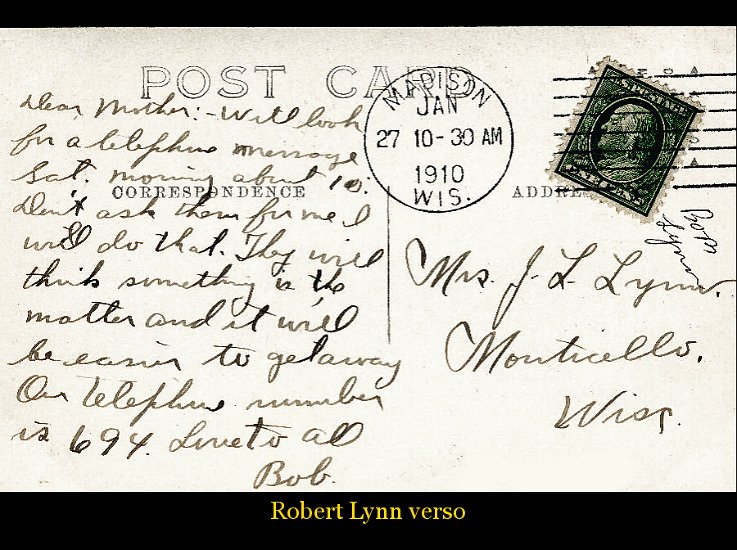 POST CARD
MADISON
JAN
27 10-30 AM
1910
WIS.
CORRESPONDENCE
Dear Mother:- Will look
for a telephone message
Sat. morning about 10.
Don't ask them for me I
will do that. They will
think something is the
matter and it will
be easier to get away
Our telephone number
is 694. Love to all
Bob.
Mrs. J. L. Lynn.
Monticello.
Wisc.
Robert Lynn verso